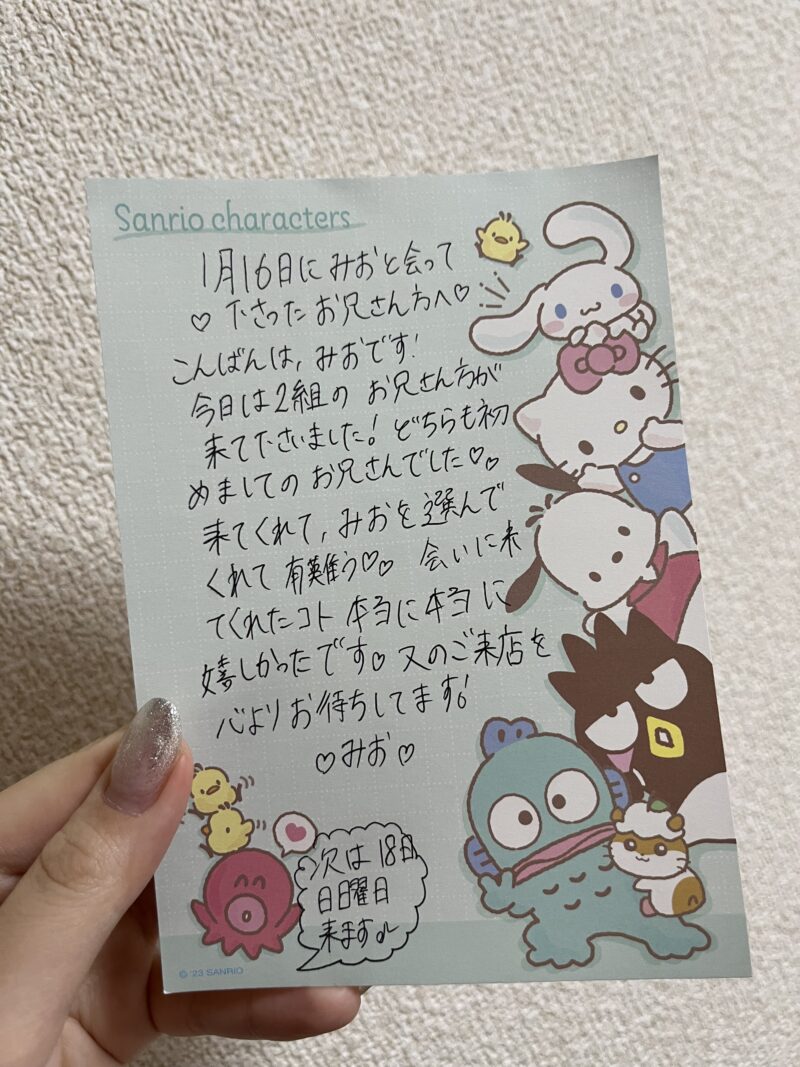 Sanrio characters
1月16日にみおと会って
♡下さったお兄さん方へ♡
こんばんは, みおです!
今日は2組の お兄さん方が
来て下さいました! どちらも初
めましてのお兄さんでした♡♡
来てくれて, みおを選んで
くれて 有難う♡♡ 会いに来
てくれたコト本当に本当に
嬉しかったです♡又のご来店を
心よりお待ちしてます!
♡みお♡
次は18日
日曜日
来ます♪
© '23 SANRIO